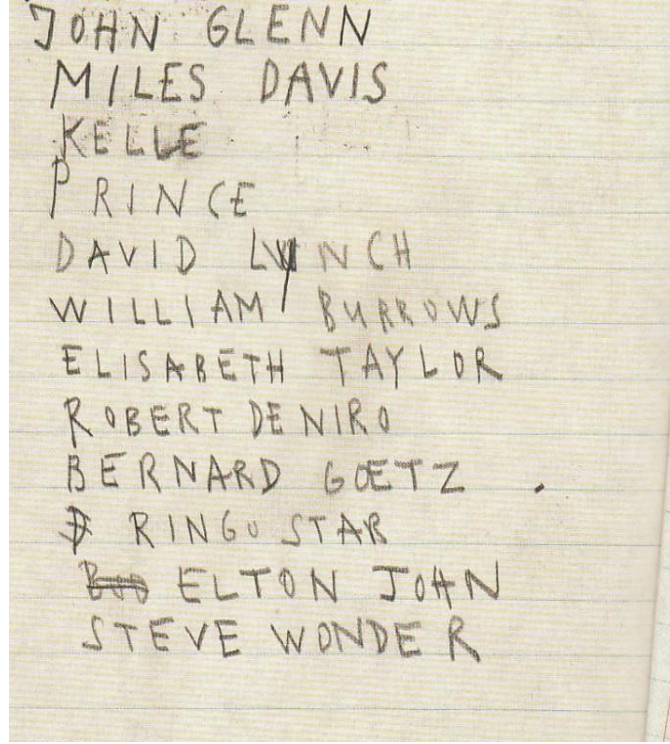 JOHN GLENN
MILES DAVIS
KELLE
PRINCE
DAVID LYNCH
WILLIAM BURROWS
ELISABETH TAYLOR
ROBERT DE NIRO
BERNARD GOETZ .
RINGO STAR
ELTON JOHN
STEVE WONDER